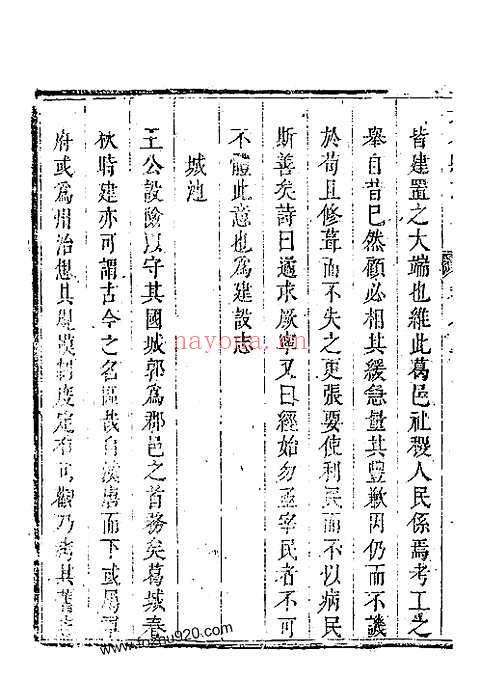 皆建置之大端也維此葛邑社稷人民係焉考工之
舉自昔已然顧必相其緩急量其豐歉因仍而不譏
於苟且修葺而不失之更張要使利民而不以病民
斯善矣詩曰遹求厥寧又曰經始勿亟宰民者不可
不體此意也為建設志
城池
王公設險以守其國城郭為郡邑之首務矣葛城春
秋時建亦可謂古今之名區哉自漢唐而下或為軍
府或為州治想其規模制度定有可觀乃考其舊
nayona.cn
www.fozhu920.com